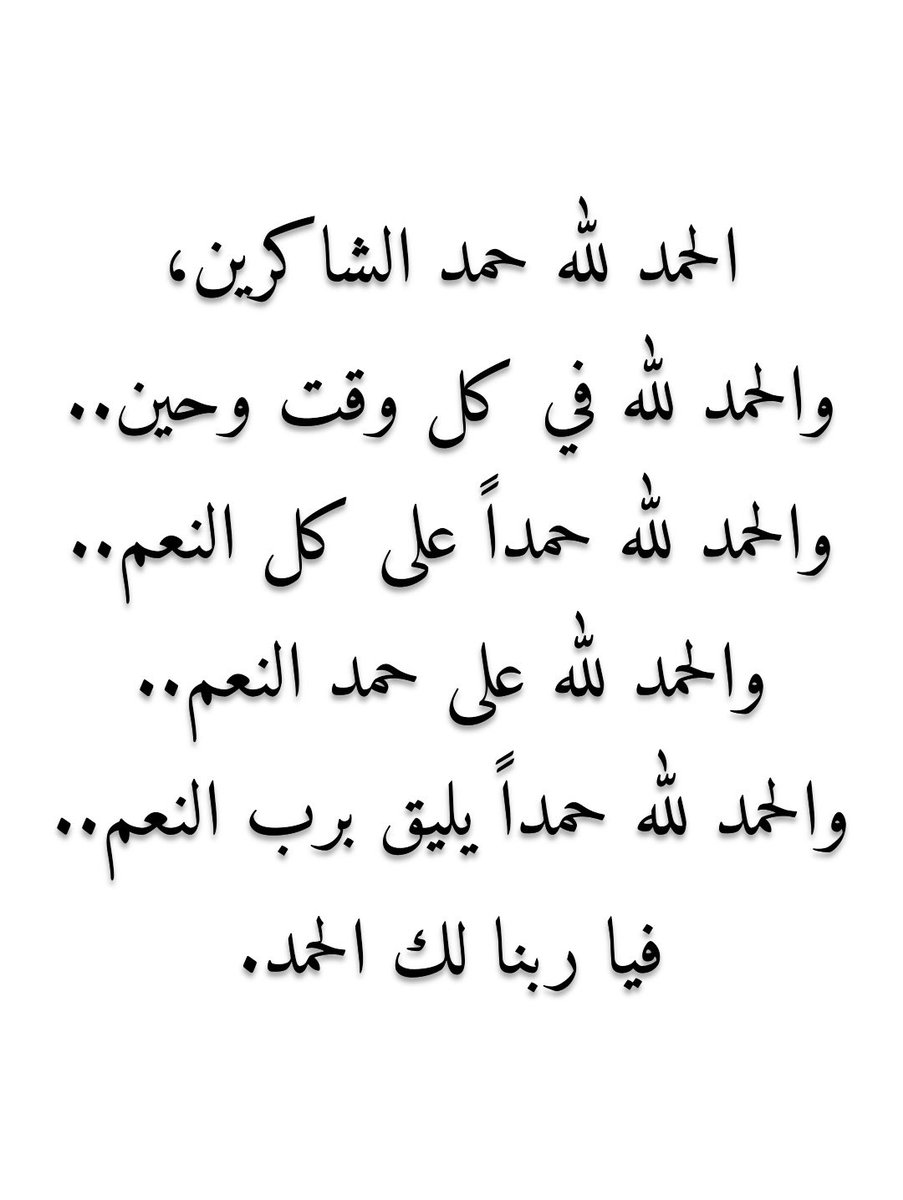 الحمد لله حمد الشاكرين،
والحمد لله في كل وقت وحين..
والحمد لله حمداً على كل النعم..
والحمد لله على حمد النعم..
والحمد لله حمداً يليق برب النعم..
فيا ربنا لك الحمد.